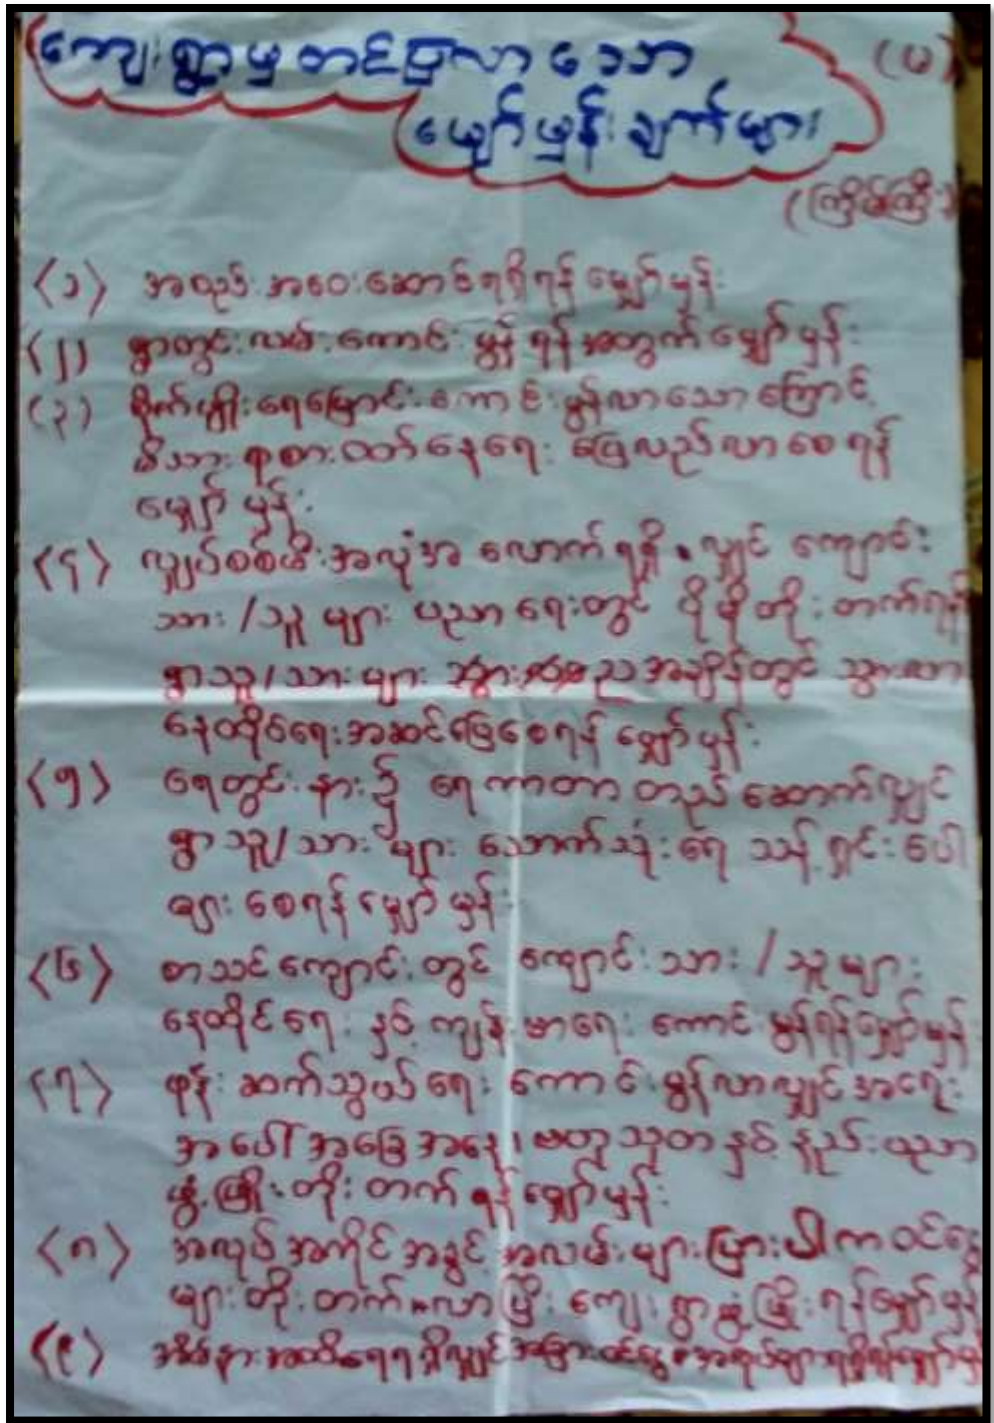 ကျေးရွာမှတင်ပြလာသော (မ)
မျှော်မှန်းချက်များ
(ကြိမ်ကြီး)
(၁) အစည်းအဝေးဆောင်ရရှိရန် မျှော်မှန်း
(၂) ရွာတွင်းလမ်းကောင်းမွန်ရန်အတွက်မျှော်မှန်း
(၃) စိုက်ပျိုးရေမြောင်းကောင်းမွန်လာသောကြောင့်
မိသားစုစားဝတ်နေရေး ပြေလည်လာစေရန်
မျှော်မှန်း
(၄) လျှပ်စစ်မီးအလုံအလောက်ရရှိလျှင် ကျောင်း
သား/သူများ ပညာရေးတွင် ပိုမိုတိုးတက်ရန်
ရွာသူ/သားများ ညအချိန်တွင် သွားလာ
နေထိုင်ရေးအဆင်ပြေစေရန် မျှော်မှန်း
(၅) ရေတွင်းနား၌ ရေကာတာတည်ဆောက်လျှင်
ရွာသူ/သားများ သောက်သုံးရေသန့်ရှင်းပေါ
များစေရန်မျှော်မှန်း
(၆) စာသင်ကျောင်းတွင် ကျောင်းသား/သူများ
နေထိုင်ရေးနှင့်ကျန်းမာရေး ကောင်းမွန်ရန်မျှော်မှန်း
(၇) ဖုန်းဆက်သွယ်ရေး ကောင်းမွန်လာလျှင်အရေး
အပေါ်အခြေအနေ၊ ဗဟုသုတနှင့်နည်းပညာ
ဖွံ့ဖြိုးတိုးတက်ရန်မျှော်မှန်း
(၈) အလုပ်အကိုင်အခွင့်အလမ်းများပြားပါကဝင်ငွေ
များတိုးတက်လာပြီး ကျေးရွာဖွံ့ဖြိုးရန်မျှော်မှန်း
(၉)